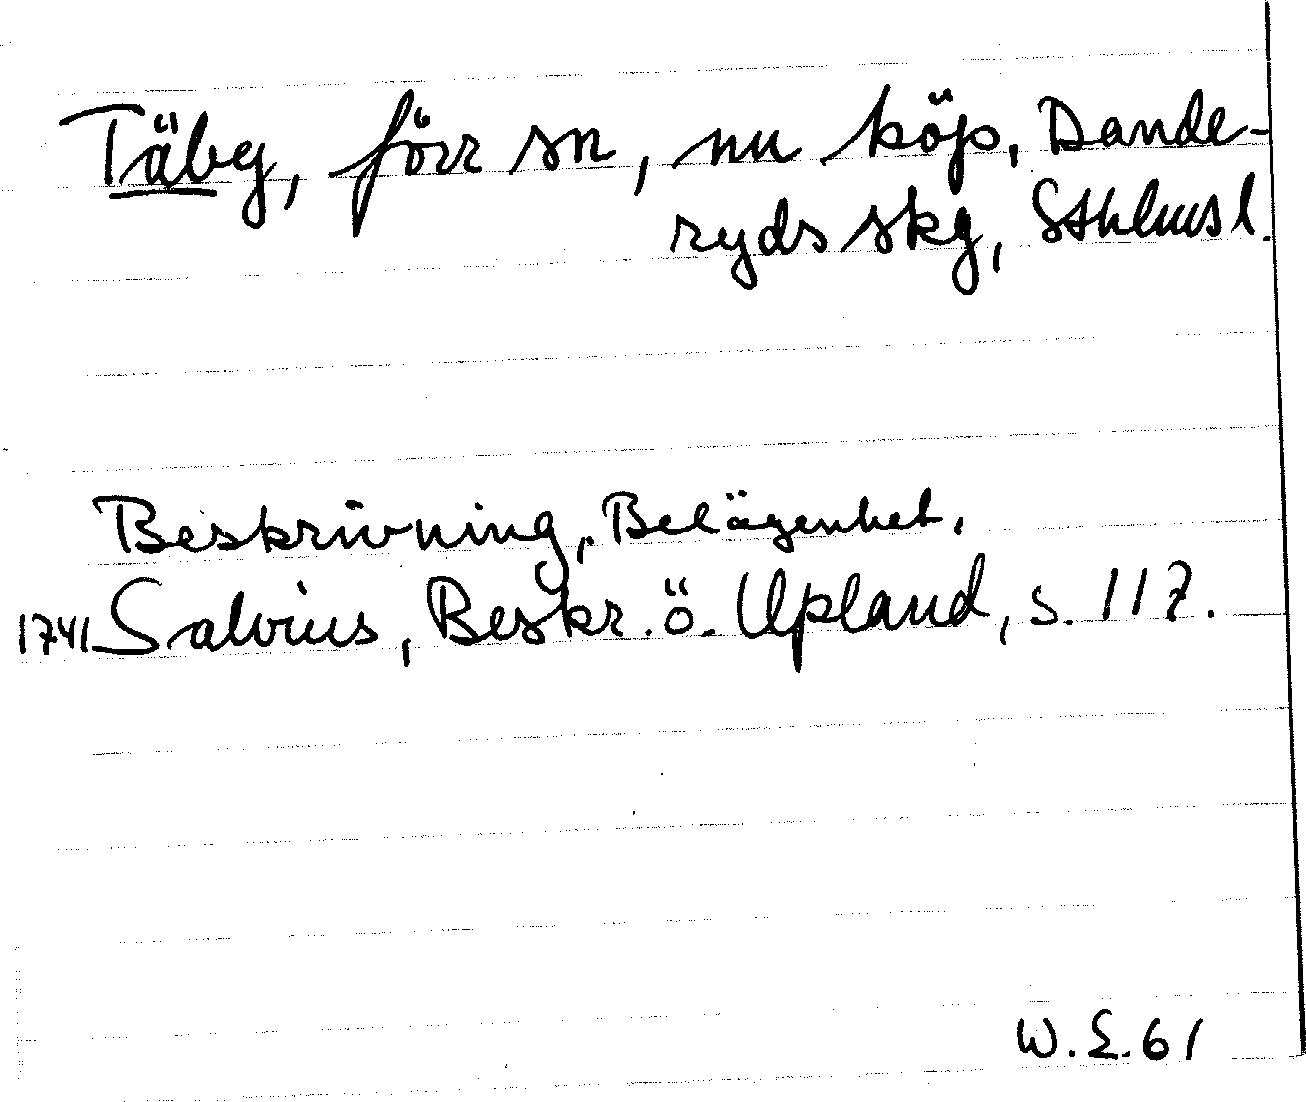 Täby, förr sn, nu köp, Dande-
ryds skg, Sthlms l.
Beskrivning, Belägenhet.
1741 Salvius, Beskr. ö. Upland, s. 117.
W.E.61